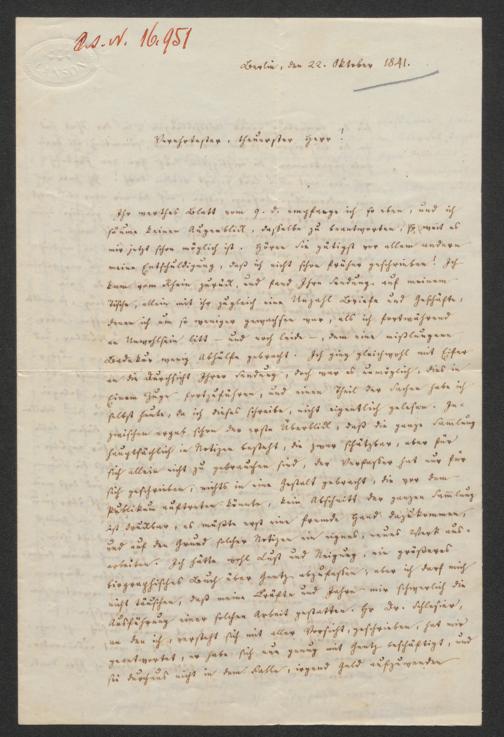 A.s.N. 16.951
Berlin, den 22. Oktober 1841.
Verehrtester, theuerster Herr!
Ihr werthes Blatt vom 9. d. empfange ich so eben, und ich
säume keinen Augenblick, dasselbe zu beantworten, so weit es
mir jetzt schon möglich ist. Hören Sie gütigst vor allem andern
meine Entschuldigung, daß ich nicht schon früher geschrieben! Ich
kam vom Rhein zurück, und fand Ihre Sendung auf meinem
Tische, allein mit ihr zugleich eine Unzahl Briefe und Geschäfte,
denen ich um so weniger gewachsen war, als ich fortwährend
an Unwohlsein litt – und noch leide –, dem eine mißlungene
Badekur wenig Abhülfe gebracht. Ich ging gleichwohl mit Eifer
an die Durchsicht Ihrer Sendung, doch war es unmöglich, dies in
Einem Zuge fortzuführen, und einen Theil der Sachen habe ich
selbst heute, da ich dieses schreibe, nicht eigentlich gelesen. In-
zwischen ergab schon der erste Überblick, daß die ganze Samlung
hauptsächlich in Notizen besteht, die zwar schätzbar, aber für
sich allein nicht zu gebrauchen sind, der Verfasser hat nur für
sich geschrieben, nichts in eine Gestalt gebracht, die vor dem
Publikum auftreten könnte, kein Abschnitt der ganzen Samlung
ist druckbar, es müßte erst eine fremde Hand dazukommen,
und auf den Grund solcher Notizen ein eignes, neues Werk aus-
arbeiten. Ich hätte wohl Lust und Neigung, ein größeres
biographisches Buch über Gentz abzufassen, aber ich darf mich
nicht täuschen, daß meine Kräfte und Jahre mir schwerlich die
Ausführung einer solchen Arbeit gestatten. Hr Dr. Schlesier,
an den ich, versteht sich mit aller Vorsicht, geschrieben, hat mir
geantwortet, er habe sich nun genug mit Gentz beschäftigt, und
sei durchaus nicht in dem Falle, irgend Geld aufzuwenden